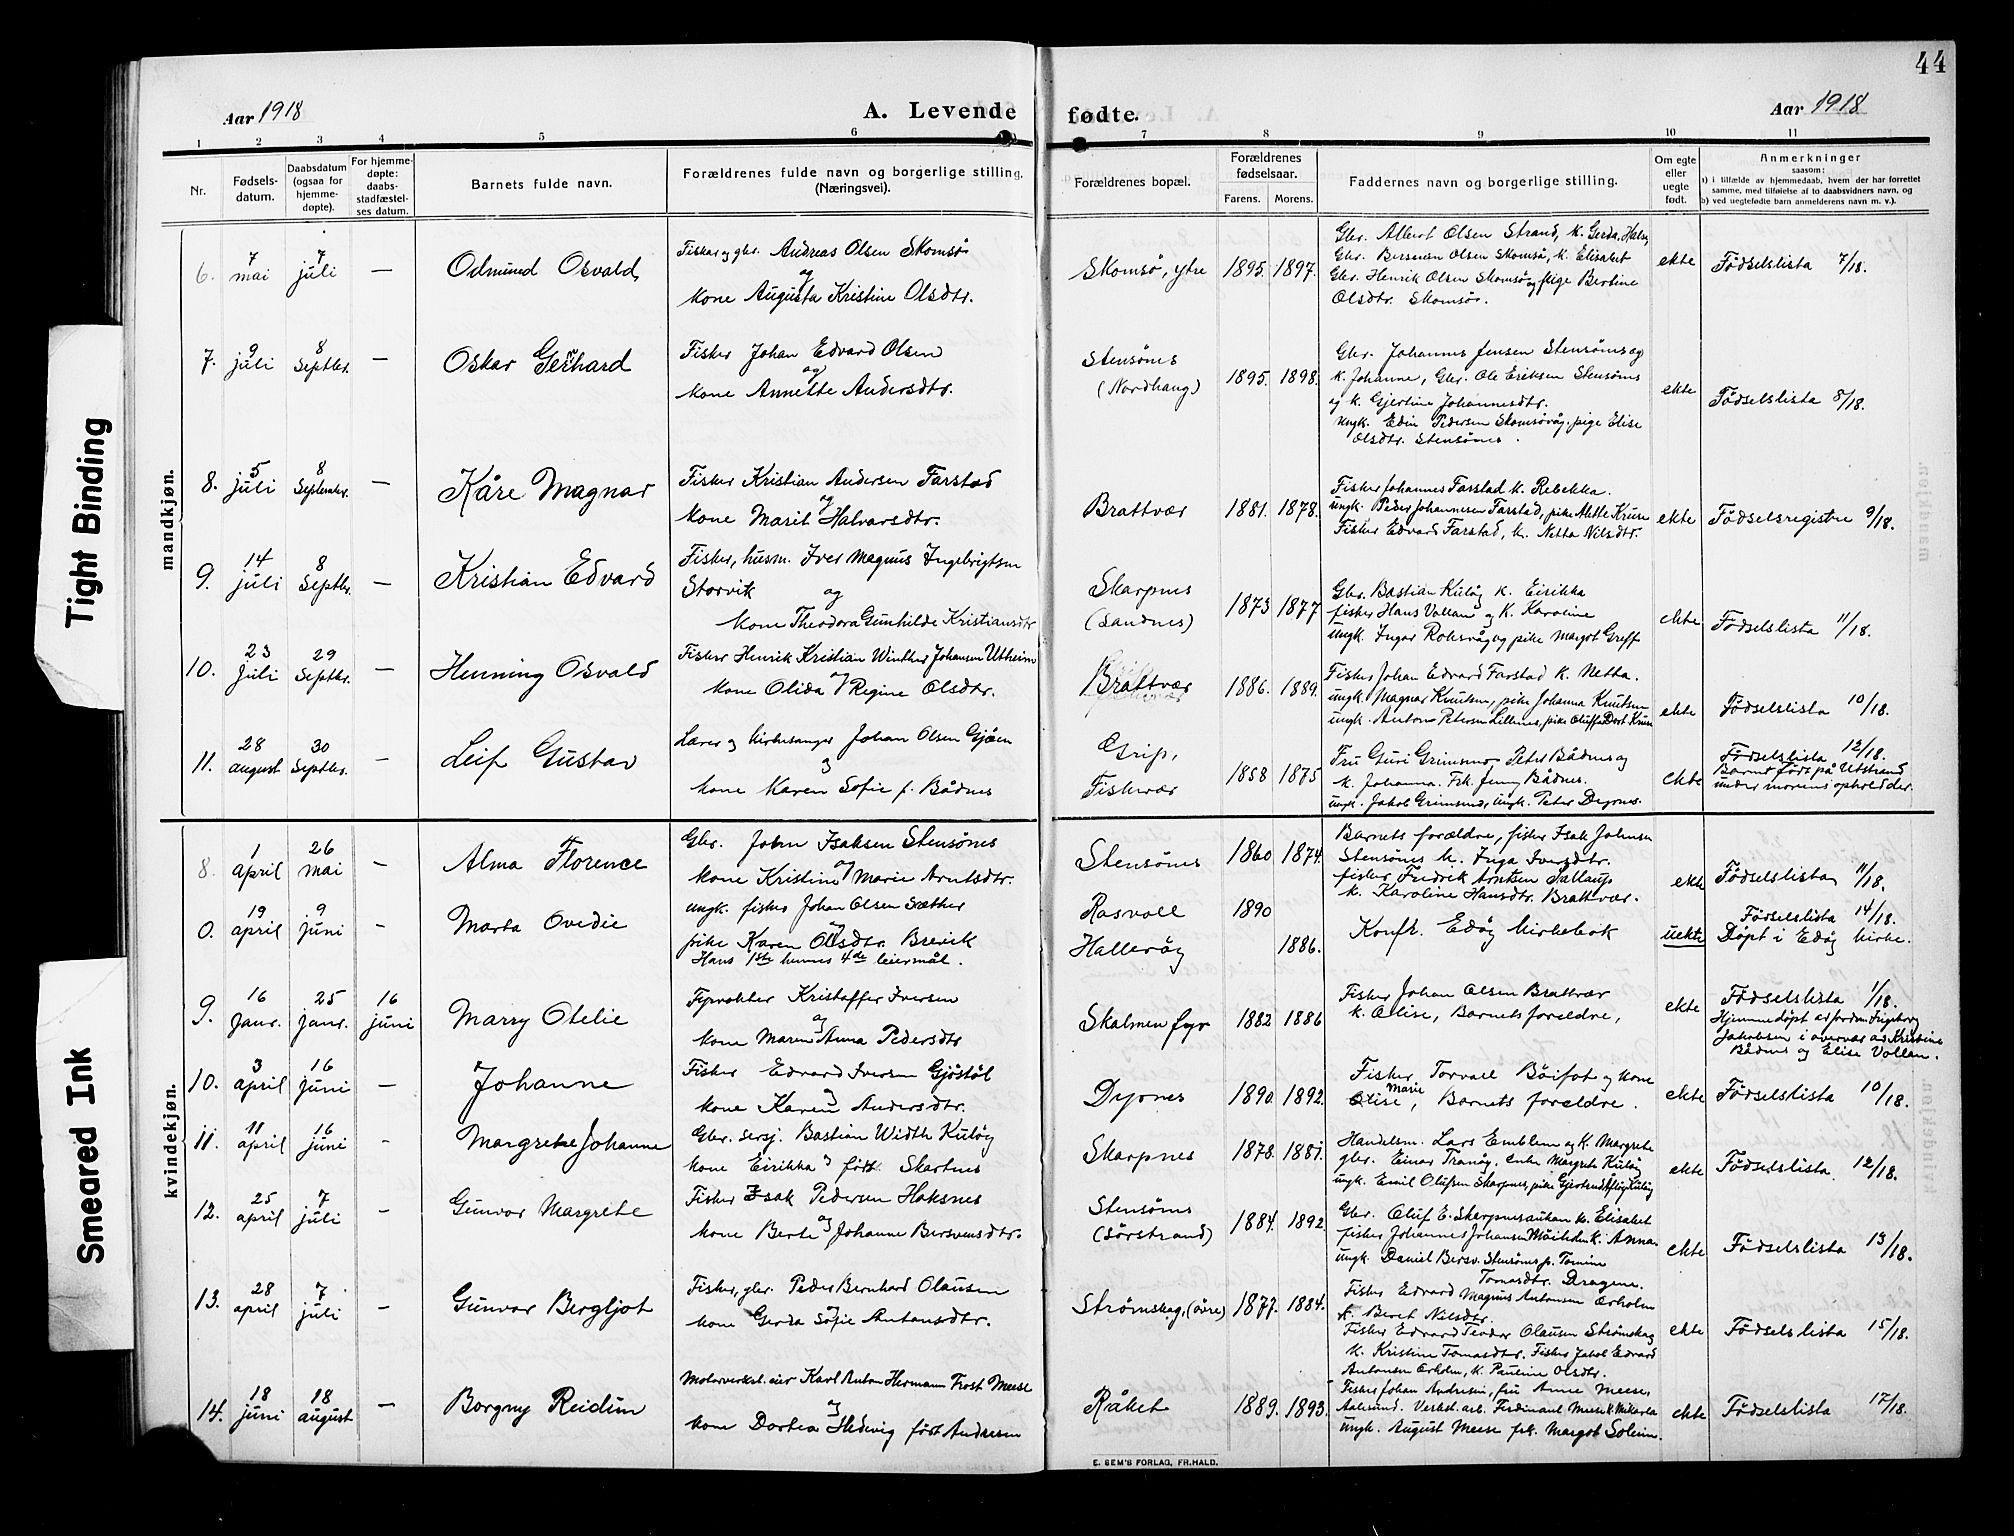 44
Aar 1918
A. Levende fødte.
Aar 1918
1 2 3 4 5 6 7 8 9 10 11
Nr.
Fødsels-
datum.
Daabsdatum
(ogsaa for
hjemme-
døpte).
For hjemme-
døpte:
daabs-
stadfæstel-
ses datum.
Barnets fulde navn.
Forældrenes fulde navn og borgerlige stilling.
(Næringsvei).
Forældrenes bopæl.
Forældrenes
fødselsaar.
Farens. Morens.
Faddernes navn og borgerlige stilling.
Om egte
eller
uegte
født.
Anmerkninger
saasom:
a) i tilfælde av hjemmedaab, hvem der har forrettet
samme, med tilføielse af to daabsvidners navn, og
b) ved uegtefødte barn anmelderens navn m. v.).
mandkjøn.
6. 7 mai 7 juli — Odmund Osvald
Fisker og gbr. Andreas Olsen Skomsø
og
kone Augusta Kristine Olsdtr.
Skomsø, ytre 1895. 1897.
Gbr. Albert Olsen Strand, k. Gerda,
Gbr. Bersven Olsen Skomsø, k. Elisabet
Gbr. Henrik Olsen Skomsø og pige Bertine
Olsdtr. Skomsø.
ekte Fødselslista 7/18.
7. 9 juli 8 Septbr. — Oskar Gerhard
Fisker Johan Edvard Olsen
og
kone Annette Andersdtr.
Stensønes
(Nordhaug) 1895. 1898.
Gbr. Johannes Jensen Stensønes og
k. Johanne, Gbr. Ole Eriksen Stensønes
og k. Gjertine Johannesdtr.
ungk. Edin Pedersen Skomsøvåg, pige Elise
Olsdtr. Stensønes.
ekte Fødselslista 8/18.
8. 5 juli 8 September. — Kåre Magnar
Fisker Kristian Andersen Farstad
og
kone Marit Halvarsdtr.
Brattvær 1881. 1878.
Fisker Johannes Farstad k. Rebekka.
ungk. Peder Johannesen Farstad, pike Mette Kruse
Fisker Edvard Farstad, k. Netta Nilsdtr.
ekte Fødselsregistre 9/18.
9. 14 juli 8 Septbr. — Kristian Edvard
Fisker, husm. Iver Magnus Ingebrigtsen
Storvik og
kone Theodora Gunhilde Kristiansdtr
Skarpnes
(Sandnes) 1873 1877
Gbr. Bastian Kuløy k. Eirikka
fisker Hans Vollan og k. Karoline
ungk. Ingar Roksvåg og pike Margot Greff
ekte Fødselslista 11/18.
10. 23 Juli 29 Septbr. — Henning Osvald
Fisker Henrik Kristian Winther Johansen Utheim
og
kone Olida Regine Olsdtr.
Brattvær 1886. 1889.
Fisker Johan Edvard Farstad k. Netta.
ungk. Magnar Knutsen, pike Johanna Knutsen
ungk. Anton Petersen Lillenes, pike Oluffa Dort Kruse
ekte Fødselslista 10/18.
11. 28 august 30 Septbr. — Leif Gustav
Lærer og kirkesanger Johan Olsen Gjøen
og
kone Karen Sofie f. Bådnes
Grip,
Fiskevær 1858 1875
Fru Guri Grimsmo Peter Bådnes og
k. Johanna. Frk. Jenny Bådnes.
ungk. Jakob Grimsmo, ungk. Peter Dyrnes.
ekte Fødselslista 12/18.
Barnet født på Utstrand
under morens ophold der.
kvindekjøn.
8. 1 april 26 mai — Alma Florence
Gbr. John Isaksen Stensønes
og
kone Kristine Marie Arntsdtr.
Stensønes 1860 1874.
Barnets forældre, fisker Isak Johnsen
Stensønes k. Inga Iversdtr.
fisker Fredrik Arntsen
k. Karoline Hansdtr. Brattvær.
ekte Fødselslista 11/18.
0. 19 april 9 juni - Marta Ovedie
ungk. fisker Johan Olsen Sæther
og
pike Karen Olsdtr. Brevik
Hans 1ste hennes 4de leiermål.
Rosvoll 1890
Hallevåg 1886.
Konfr. Edøy kirkebok
uekte
Fødselslista 14/18.
Døpt i Edøy kirke.
9. 16 Janr. 25 Janr. 16 juni Marry Otelie
Fyrvokter Kristoffer Iversen
og
kone Maren Anna Pedersdtr
Skalmen fyr 1882 1886
Fisker Johan Olsen Brattvær
k. Olise, Barnets foreldre,
ekte Fødselslista 1/18.
Hjemmedøpt av Ingeborg
Jakobsen i overvær av Kristine
Bådnes og Elise Vollan.
10. 3 april 16 Juni - Johanne
Fisker Edvard Iversen Gjøstøl
og
kone Karen Andersdtr.
Dyrnes 1890. 1892.
Fisker Torvall Böifot og kone
Marie
Olise, Barnets foreldre.
ekte Fødselslista 10/18.
11. 11 april 16 juni - Margrete Johanne
Gbr. sersj. Bastian Width Kuløy
og
kone Eirikka født Skarpnes
Skarpnes 1878. 1881.
Handelsm. Lars Emblem og k. Margrete
gbr. Einar Tranøy. enke Margrete Kuløy
ungk. Emil Olufsen Skarpnes, pike Gjertrud Kuløy
ekte Fødselslista. 12/18.
12. 25 april 7 juli - Gunvor Margrete
Fisker Isak Pedersen Haksnes
og
kone Berte Johanne Bersvensdtr.
Stensønes
(Sørstrand) 1884. 1892.
Gbr. Oluf E. Skarpnes k. Elisabet
fisker Johannes Johansen k. Anna
ungk. Daniel Bersv. Stensønes p. Tomine
Tomasdtr. Dragene.
ekte Fødselslista 13/18.
13. 28 april 7 juli - Gunvor Bergljot
Fisker, gbr. Peder Bernhard Olausen
og
kone Gerda Sofie Antonsdtr.
Strømskag, (øvre) 1877. 1884.
Fisker Edvard Magnus Antonsen Orholm
k. Beret Nilsdtr.
Fisker Edvard Teodor Olausen Strømskag
k. Kristine Tomasdtr. Fisker Jakob Edvard
Antonsen Orholm, k. Pauline Olsdtr.
ekte Fødselslista 15/18.
14. 18 juni 18 august - Borgny Reidun
Motorverkst. eier Karl Anton Hermann Frost Meese
og
kone Dortea Hedvig født Andresen
Råket 1889. 1893.
Fisker Johan Andresen, fru Anne Meese,
Aalesund. Verkst. arb. Ferdinant Meese k. Mikarla
ungk. August Meese frk. Margot Soleim.
ekte Fødselslista 17/18.
E. SEM'S FORLAG, FR.HALD.
Tight Binding
Smeared Ink